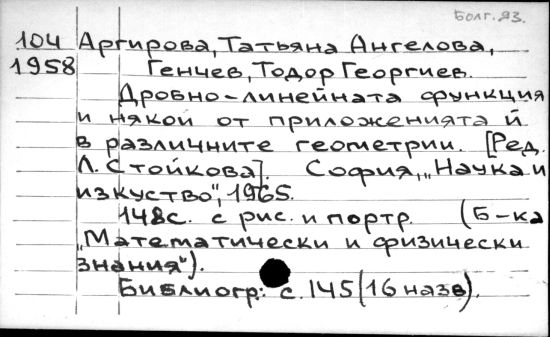 Болг. 93.
104 Аргирова, Татьяна Ангелова,
1958 Генчев, Тодор Георгиев.
Дробно-линейната функция
и някои от приложенията й
в различните геометрии. [Ред.
Л. Стойкова]. София, „Наука и
изкуство", 1965.
148с. с рис. и портр. (Б-ка
„Математически и физически
знания").
Библиогр.: с. 145 (16 назв).